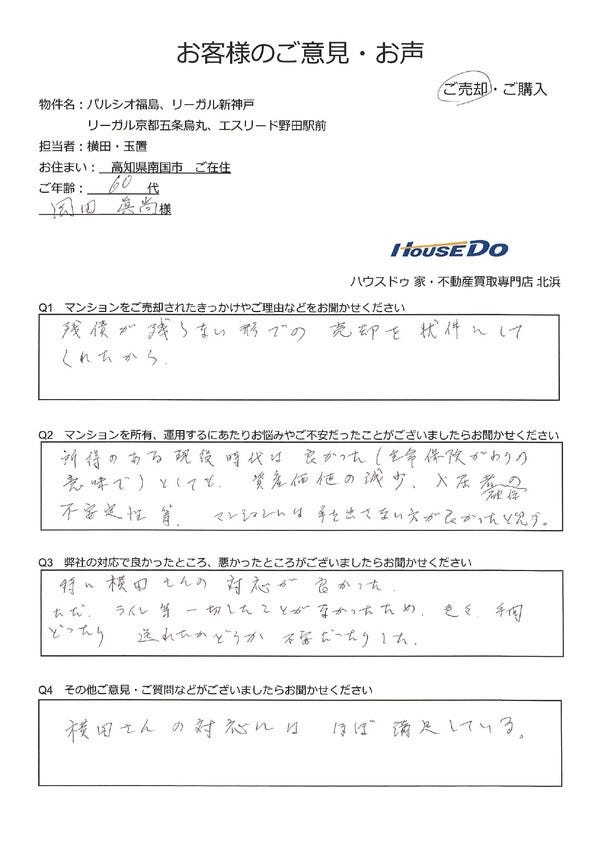 お客様のご意見・お声
ご売却・ご購入
物件名：パルシオ福島、リーガル新神戸
リーガル京都五条烏丸、エスリード野田駅前
担当者：横田・玉置
お住まい： 高知県南国市 ご在住
ご年齢： 60 代
岡田 眞尚様
HOUSEDO
ハウスドゥ 家・不動産買取専門店 北浜
Q1 マンションをご売却されたきっかけやご理由などをお聞かせください
残債が残らない形での 売却を 状件にして
くれたから.
Q2 マンションを所有、運用するにあたりお悩みやご不安だったことがございましたらお聞かせください
所得のある現役時代は 良かった(生命保険がわりの
意味で)としても. 資産価値の減少、入居者の確保
不安定性 等. マンションには 手を出さない方が良かったと思う。
Q3 弊社の対応で良かったところ、悪かったところがございましたらお聞かせください
特に 横田さんの 対応が 良かった.
ただ. ライン等一切したことがなかったため. 手間
どったり 送れたかどうか 不安だったりした.
Q4 その他ご意見・ご質問などがございましたらお聞かせください
横田さんの対応には ほぼ 満足している。